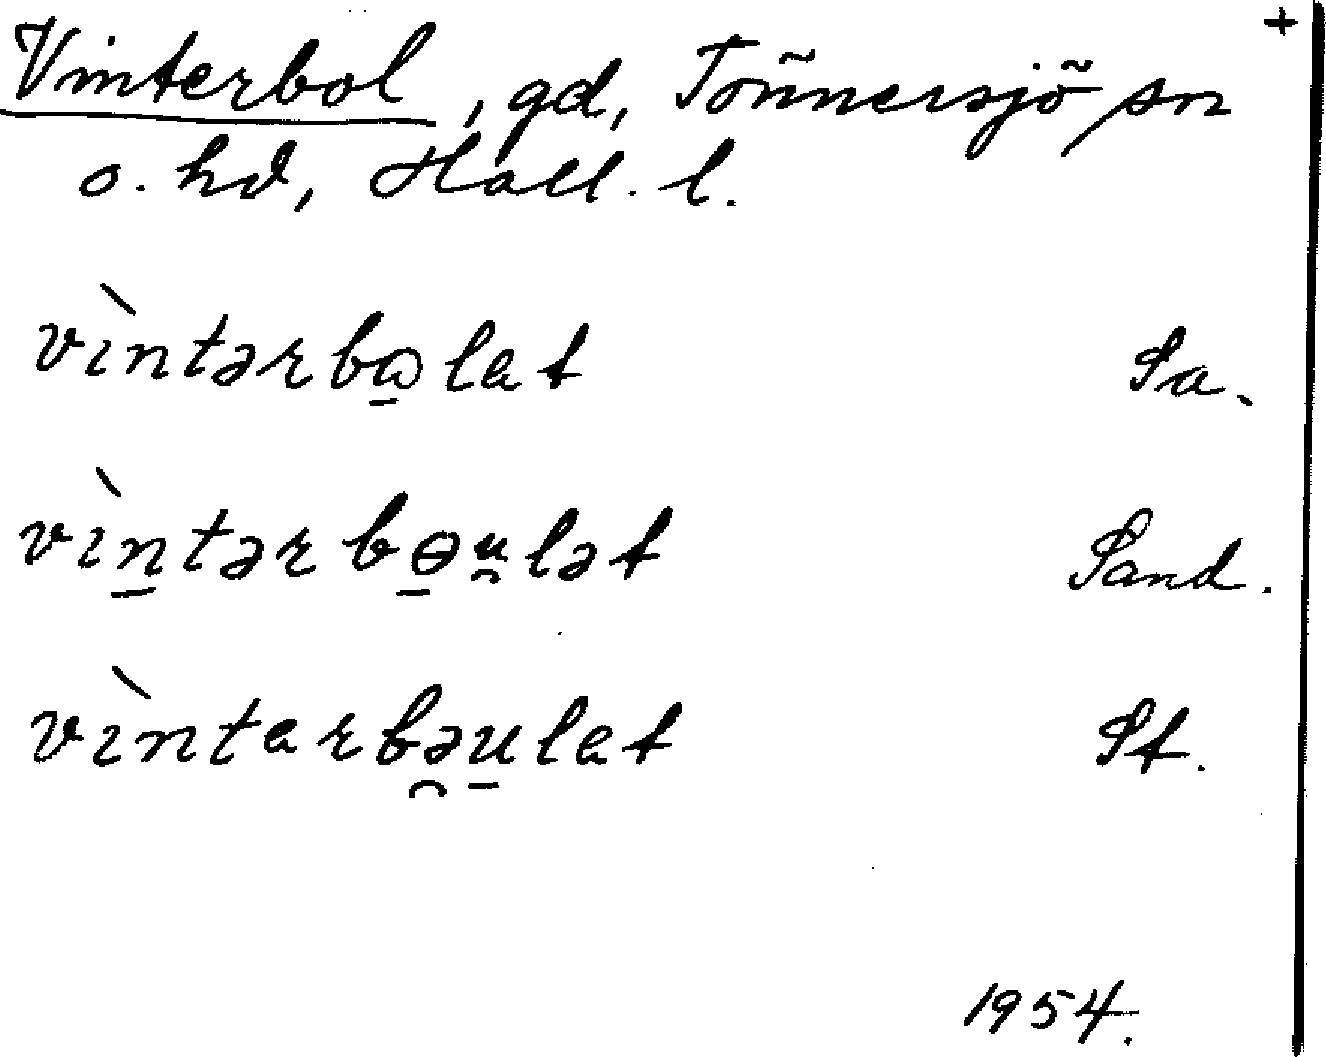 +
Vinterbol, gd, Tönnersjö sn
o. hd, Hall. l.
vìntərbɷ̱let Sa.
vìṉtərbɵ̱u̯lət Sand.
vìnterbə̯u̱let St.
1954.